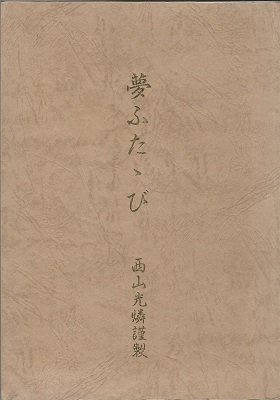 夢ふたゝび
西山光燐謹製